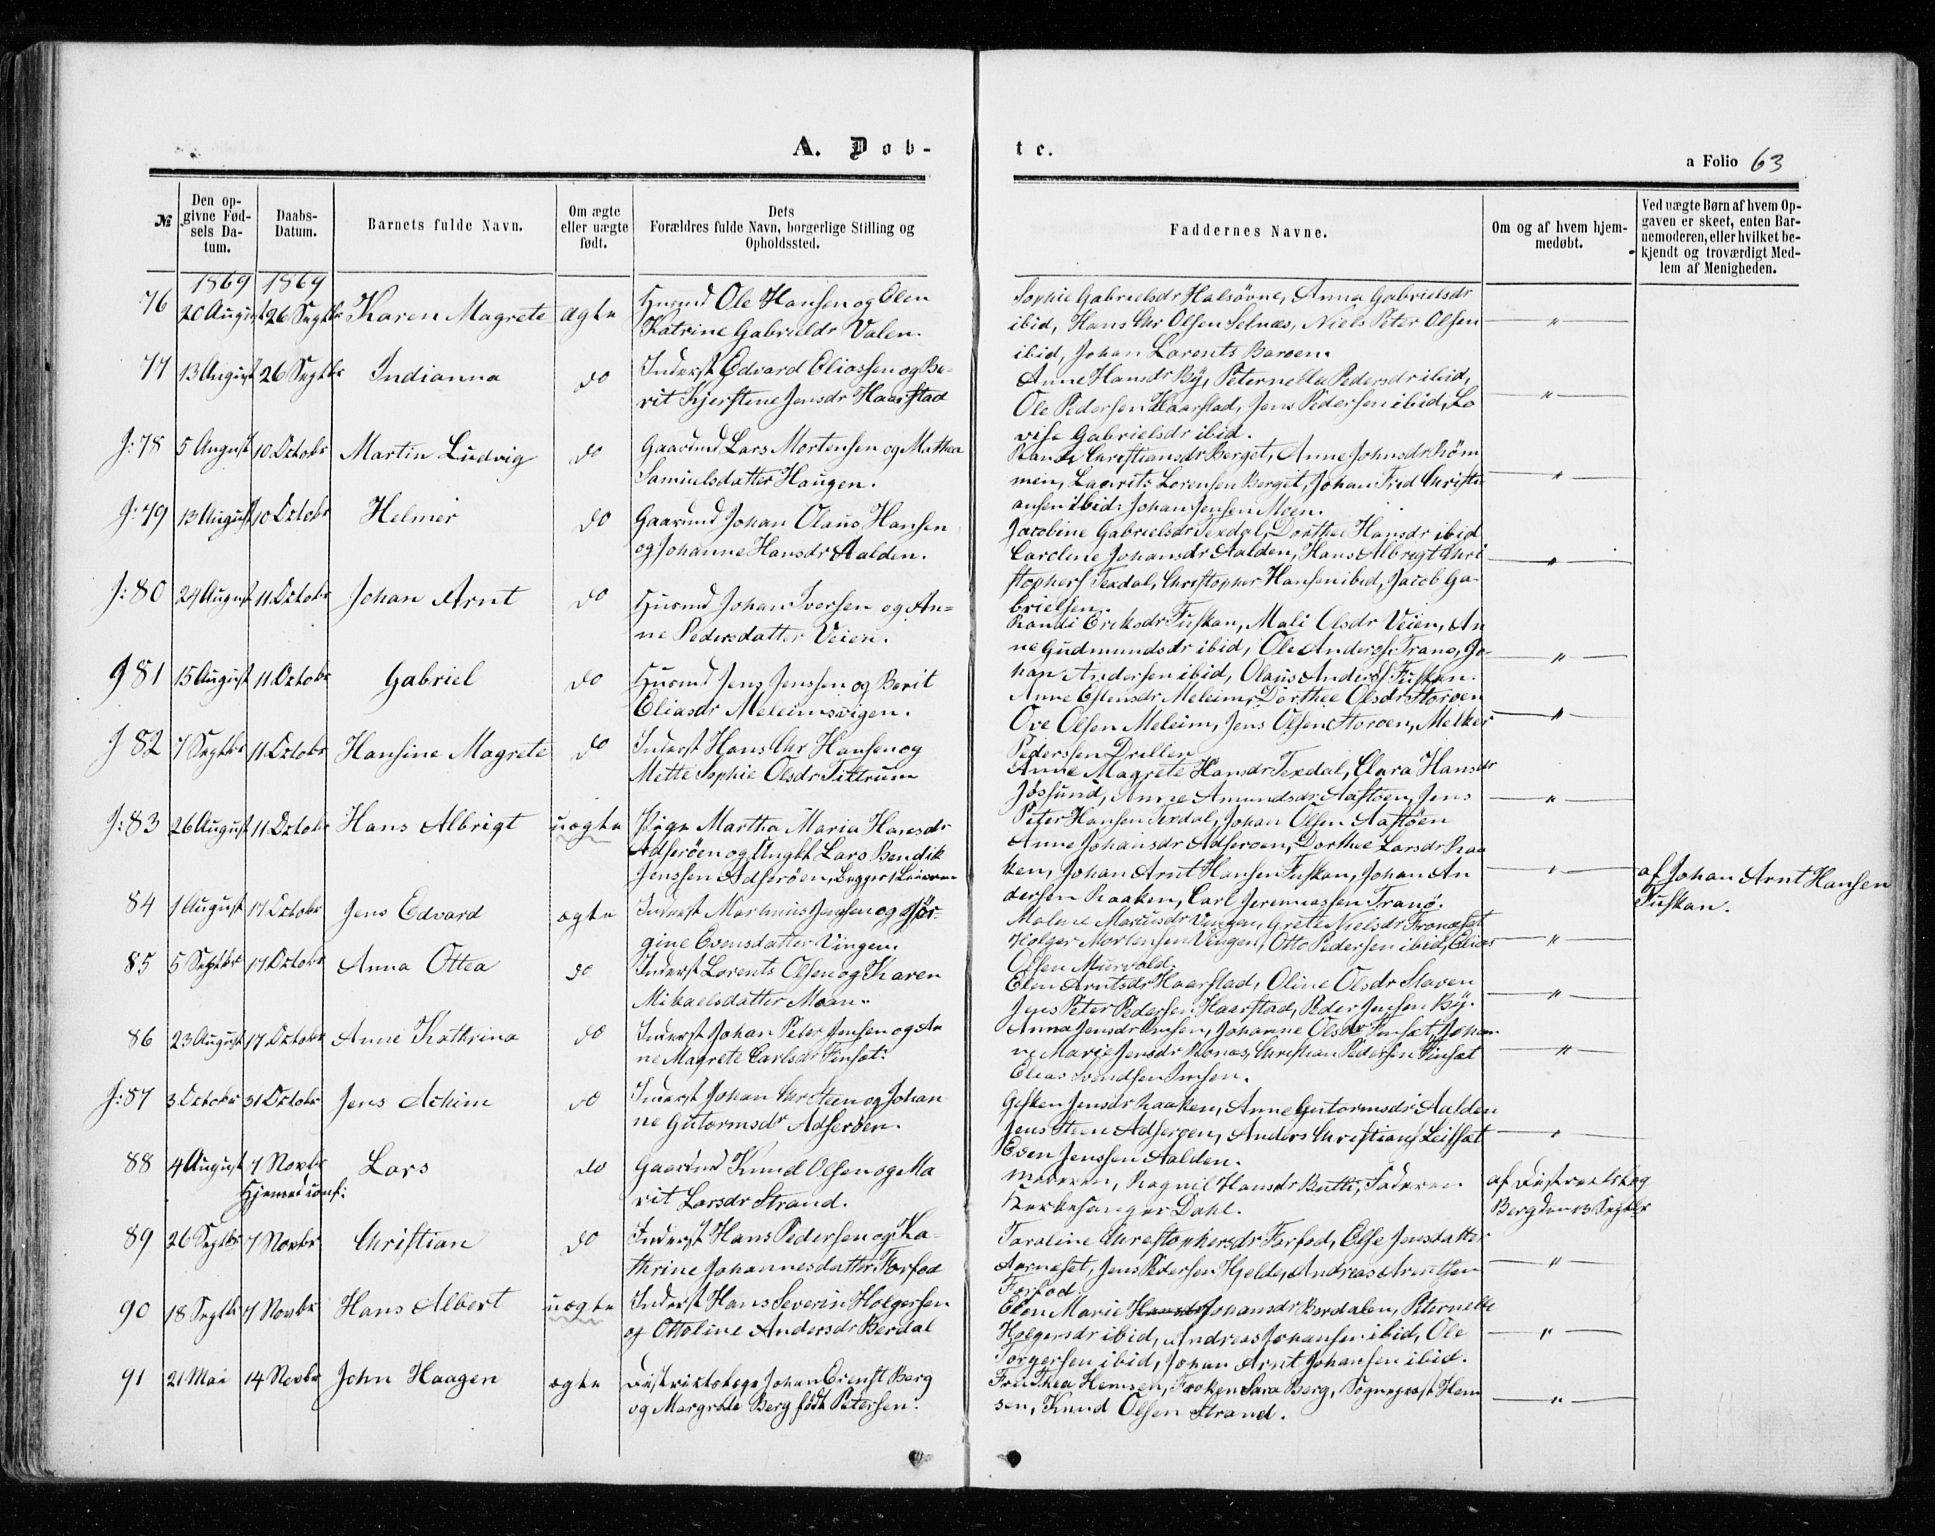 A. Døb-
te.
a Folio 63
№
Den op-
givne Fød-
sels Da-
tum.
Daabs-
Datum.
Barnets fulde Navn.
Om ægte
eller uægte
født.
Dets
Forældres fulde Navn, borgerlige Stilling og
Opholdssted.
Faddernes Navne.
Om og af hvem hjem-
medøbt.
Ved uægte Børn af hvem Op-
gaven er skeet, enten Bar-
nemoderen, eller hvilket be-
kjendt og troværdigt Med-
lem af Menigheden.
1869 1869
76 20 August 26 Septbr Karen Magrete ægte
Husmd Ole Hansen og Elen
Katrine Gabrieldr Valen.
Sophie Gabrielsdr Halsøvne, Anna Gabrielsdr
ibid, Hans Chr Olsen Selnæs, Niels Peter Olsen
ibid, Johan Lorents Baroen.
77 13 August 26 Septbr Indianna do
Inderst Edvard Eliassen og Be-
rit Kjerstene Jensdr Haarstad
Anne Hansdr By, Peternella Pedersdr ibid,
Ole Pedersen Haarstad, Jens Pedersen ibid, Lo
vise Gabrielsdr ibid.
J: 78 5 August 10 Octobr Martin Ludvig do
Gaarmd Lars Mortensen og Mathea
Samuelsdatter Haugen.
Christiansdr Berget, Anne Johnsdr Røm
men, Laurits Lorensen Berget, Johan Fred Christi
ansen ibid: Johan Jensen Moen.
J: 79 13 August 10 Octobr Helmer do
Gaarmd Johan Olaus Hansen
og Johanne Hansdr Aalden.
Jacobine Gabrielsdr Texdal, Dorthee Hansdr ibid
Caroline Johansdr Aalden, Hans Albrigt Chri
stophers Texdal, Christopher Hansen ibid, Jacob Ga-
brielsen.
J: 80 24 August 11 Octobr Johan Arnt do
Husmd Johan Iversen og An=
ne Pedersdatter Veien.
Randi Eriksdr Fuskan, Mali Olsdr Veien, An
ne Gudmundsdr ibid, Ole Anders Tranø, Jo-
han Andersen ibid, Olaus Anders Fuskan.
J 81 15 August 11 Octobr Gabriel do
Husmd Jens Jenssen og Berit
Eliasdr Meleimsvigen.
Anne Estensdr Meleim, Dorthee Olsdr Storoen
Ove Olsen Meleim, Jens Olsen Storoen, Melker
Pederssen Drillen
J 82 7 Septbr 11 Octobr Hansine Magrete do
Inderst Hans Chr Hansen og
Mette Sophie Olsdr Titrum
Anne Magrete Hansdr Texdal, Clara Hansdr
Jøssund, Anne Amundsdr Aastøen, Jens
Peter Hansen Texdal, Johan Olsen Aastøen
J: 83 26 August 11 Octobr Hans Albrigt uægte
Pige Martha Maria Hansdr
Adserøen og Ungkl Lars Bendik
Jenssen Adserøen,
Anne Johansdr Adserøen, Dorthee Larsdr Raa
ken, Johan Arnt Hansen Fuskan, Johan An
dersen Raaken, Carl Jeremiassen Tranø.
af Johan Arnt Hansen
Fuskan.
84 1 August 17 Octobr Jens Edvard ægte
Inderst Martinus Jensen og Jør-
gine Evensdatter Vingen.
Malene Marcusdr Vingen, Grete Nielsdr
Holger Mortensen Vingen, Otto Pedersen ibid, Elias
Olsen Murvold.
85 5 Septbr 17 Octobr Anna Ottea do
Inderst Lorents Olsen og Karen
Mikaelsdatter Moan.
Elen Arntsdr Haarstad, Oline Olsdr Staven
Jens Peter Pedersen Haarstad, Peder Jensen By.
86 23 August 17 Octobr Anne Kathrina do
Inderst Johan Peter Jensen og An
ne Magrete Carlsdr Finsæt.
Anna Jensdr Imsen, Johanne Olsdr Finsæt, Johan
ne Marie Jensdr Rønes, Christian Pedersen Finsæt
Elias Svendsen Imsen.
J: 87 3 Octobr 31 Octobr Jens Achim do
Inderst Johan Chr Steen og Johan
ne Gutormsdr Adserøen.
Gesken Jensdr Raaken, Anne Gutormsdr Aalden
Jens Steen Adserøen, Anders Christians Leitsæt
Even Jenssen Aalden.
88 4 August 7 Novbr Lars do
Hjemmed conf:
Gaarmd Knud Olsen og Ma
rit Larsdr Strand.
Moderen, Ragnil Hansdr Buth, Faderen
Kirkesanger Dahl.
af Distrectslæg
Berg den 13 Septbr
89 26 Septbr 7 Novbr Christian do
Inderst Hans Pedersen og Ka-
thrine Johannesdatter Forfod
Caroline Christophersdr Forfod, Else Jensdatter
Aarneset, Jens Pedersen Hjelde, Andreas Arentsen
Forfod.
90 18 Septbr 7 Novbr Hans Albert uægte
Inderst Hans Severin Holgersen
og Ottoline Andersdr Berdal
Elen Marie Johansdr Berdalen, Peternelle
Holgersdr ibid, Andreas Johansen ibid, Ole
Torgersen ibid, Johan Arnt Johansen ibid.
91 21 Mai 14 Novbr John Haagen ægte
Districtslæge Johan Ernst Berg
og Margrete Berg født Petersen.
Fru Thea Hemsen, Frøken Sara Berg, Sognepræst Hem
sen, Knud Olsen Strand.